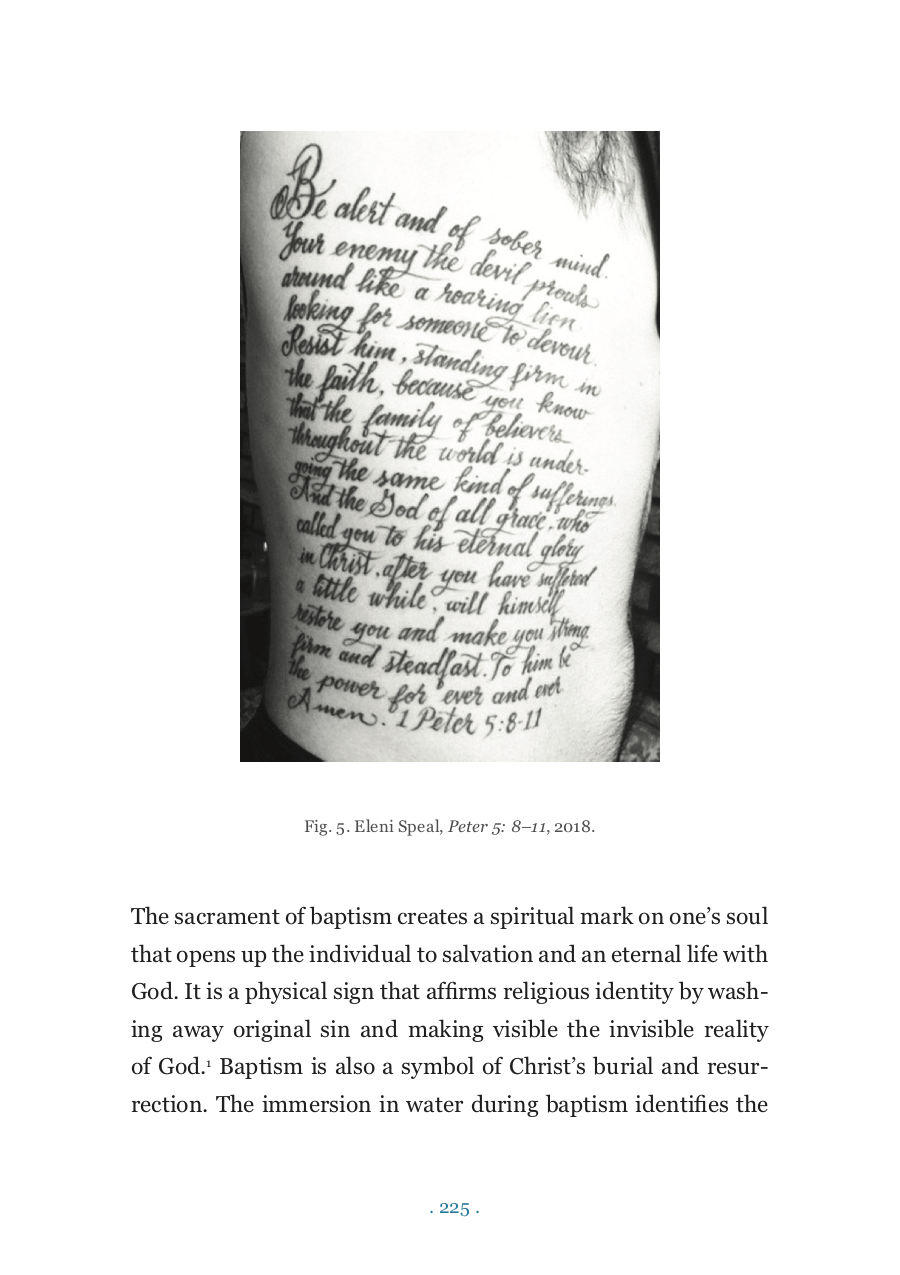 Be alert and of sober mind.
Your enemy the devil prowls
around like a roaring lion
looking for someone to devour.
Resist him, standing firm in
the faith, because you know
that the family of believers
throughout the world is under-
going the same kind of sufferings.
And the God of all grace, who
called you to his eternal glory
in Christ, after you have suffered
a little while, will himself
restore you and make you strong
firm and steadfast. To him be
the power for ever and ever
Amen. 1 Peter 5:8-11
Fig. 5. Eleni Speal, Peter 5: 8–11, 2018.
The sacrament of baptism creates a spiritual mark on one’s soul
that opens up the individual to salvation and an eternal life with
God. It is a physical sign that affirms religious identity by wash-
ing away original sin and making visible the invisible reality
of God.¹ Baptism is also a symbol of Christ’s burial and resur-
rection. The immersion in water during baptism identifies the
. 225 .